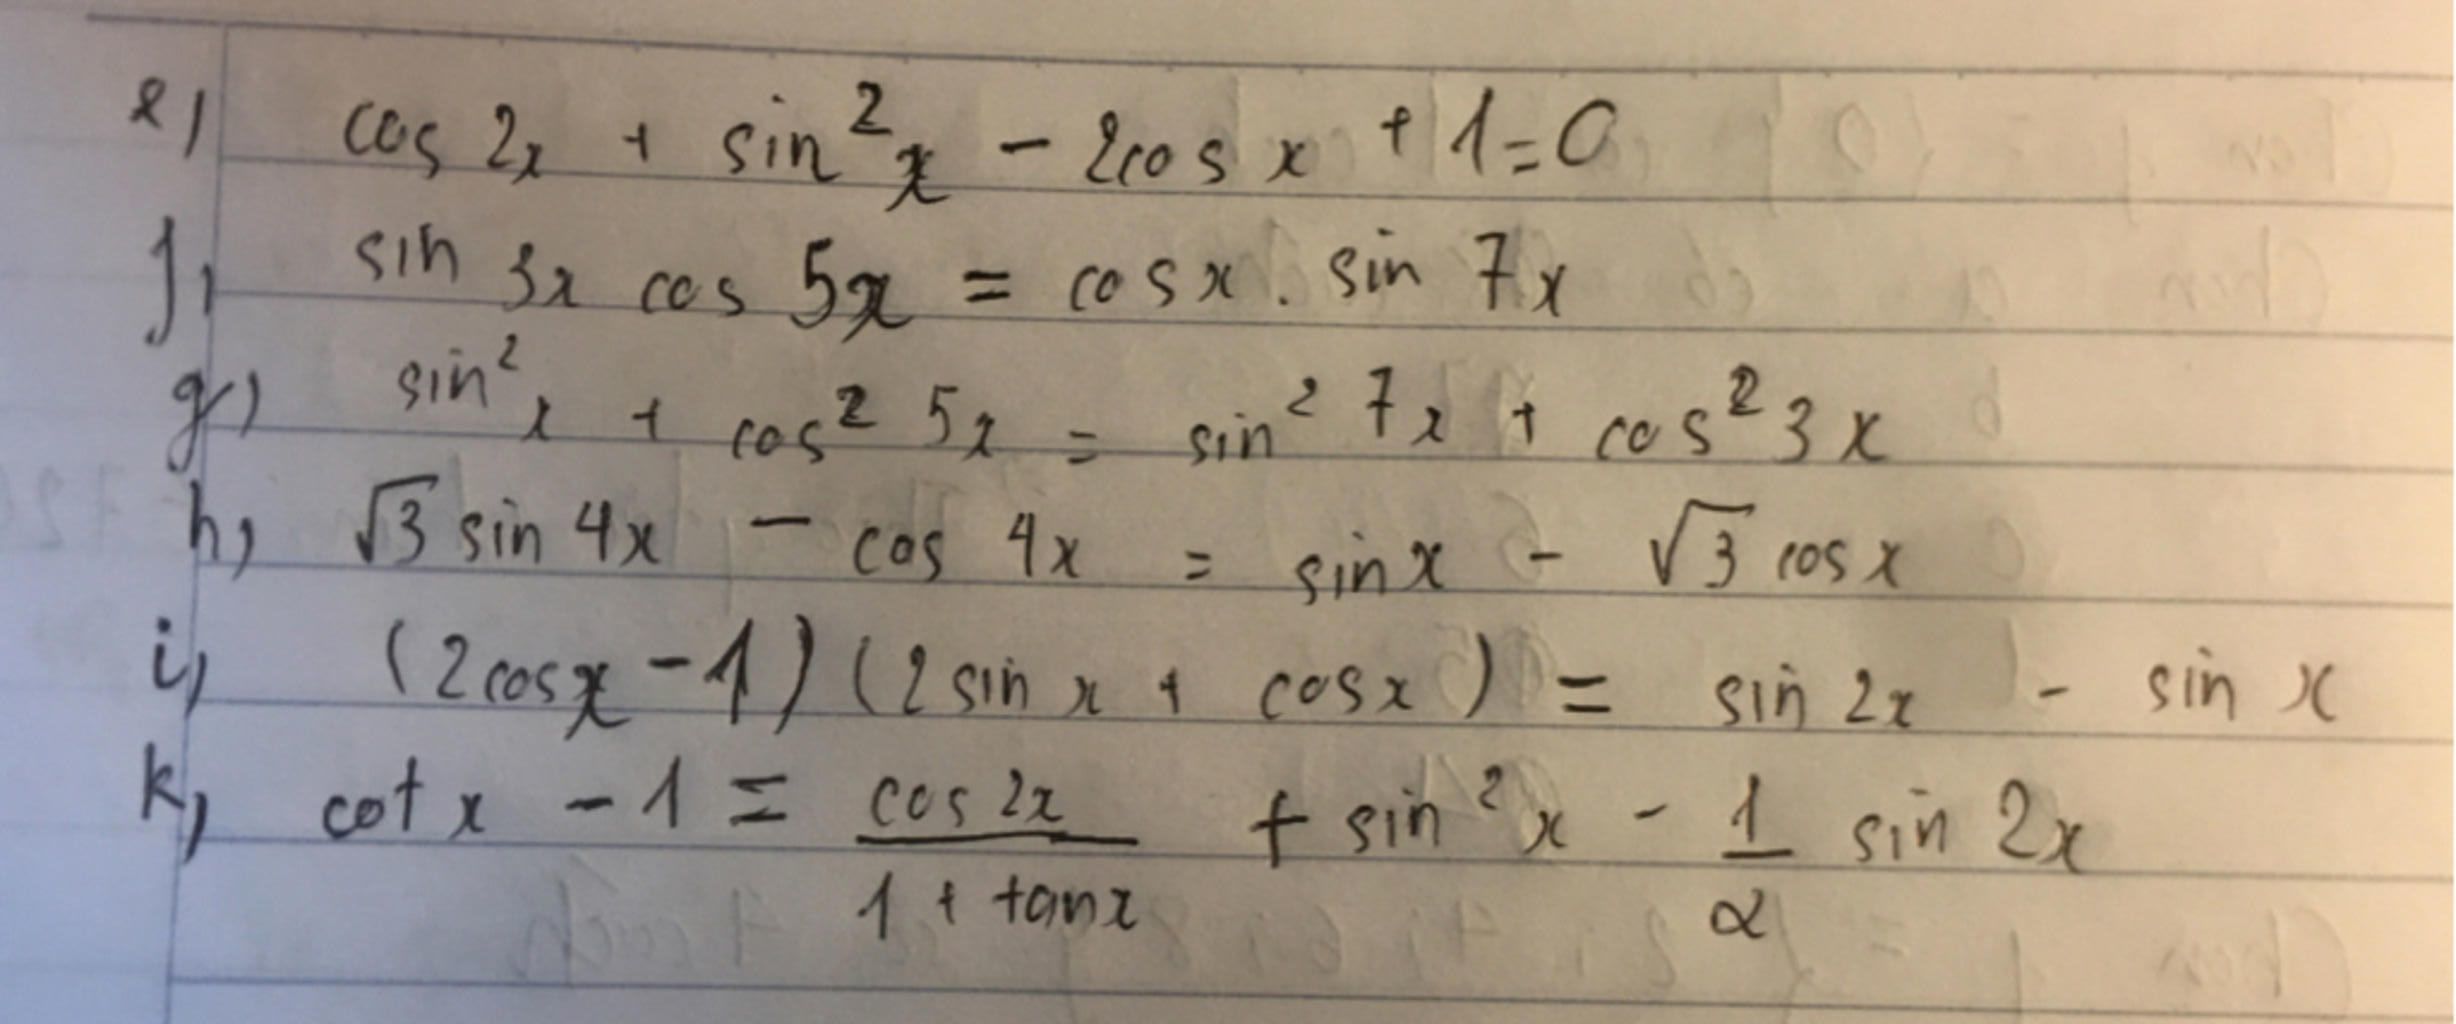 e, cos 2x + sin²x - 2cos x + 1 = 0
f, sin 3x cos 5x = cos x . sin 7x
g) sin²x + cos² 5x = sin² 7x + cos² 3x
h, √3 sin 4x - cos 4x = sin x - √3 cos x
i, (2cosx - 1)(2 sin x + cos x) = sin 2x - sin x
k, cot x - 1 = cos 2x / (1 + tanx) + sin²x - 1/2 sin 2x